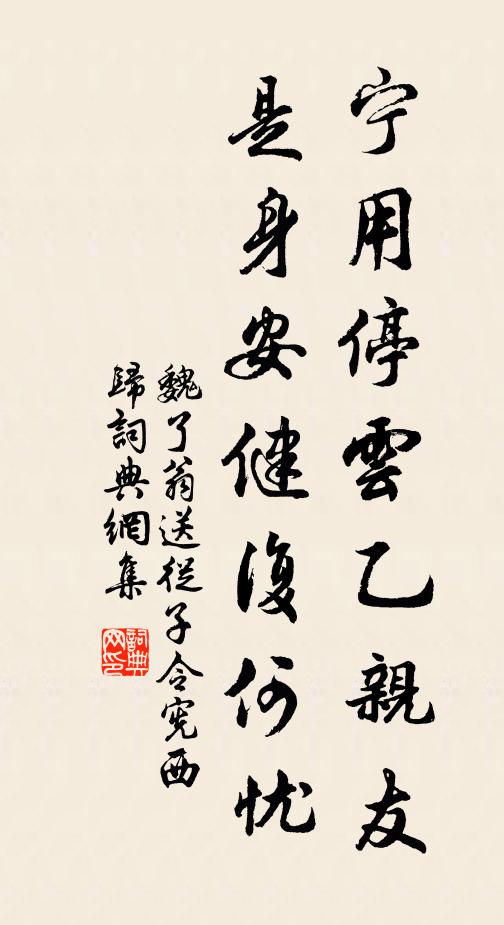 宁用停雲乙親友
是身安健復何忧
魏了翁送從子令宪西
歸詞典網集
詞典网印